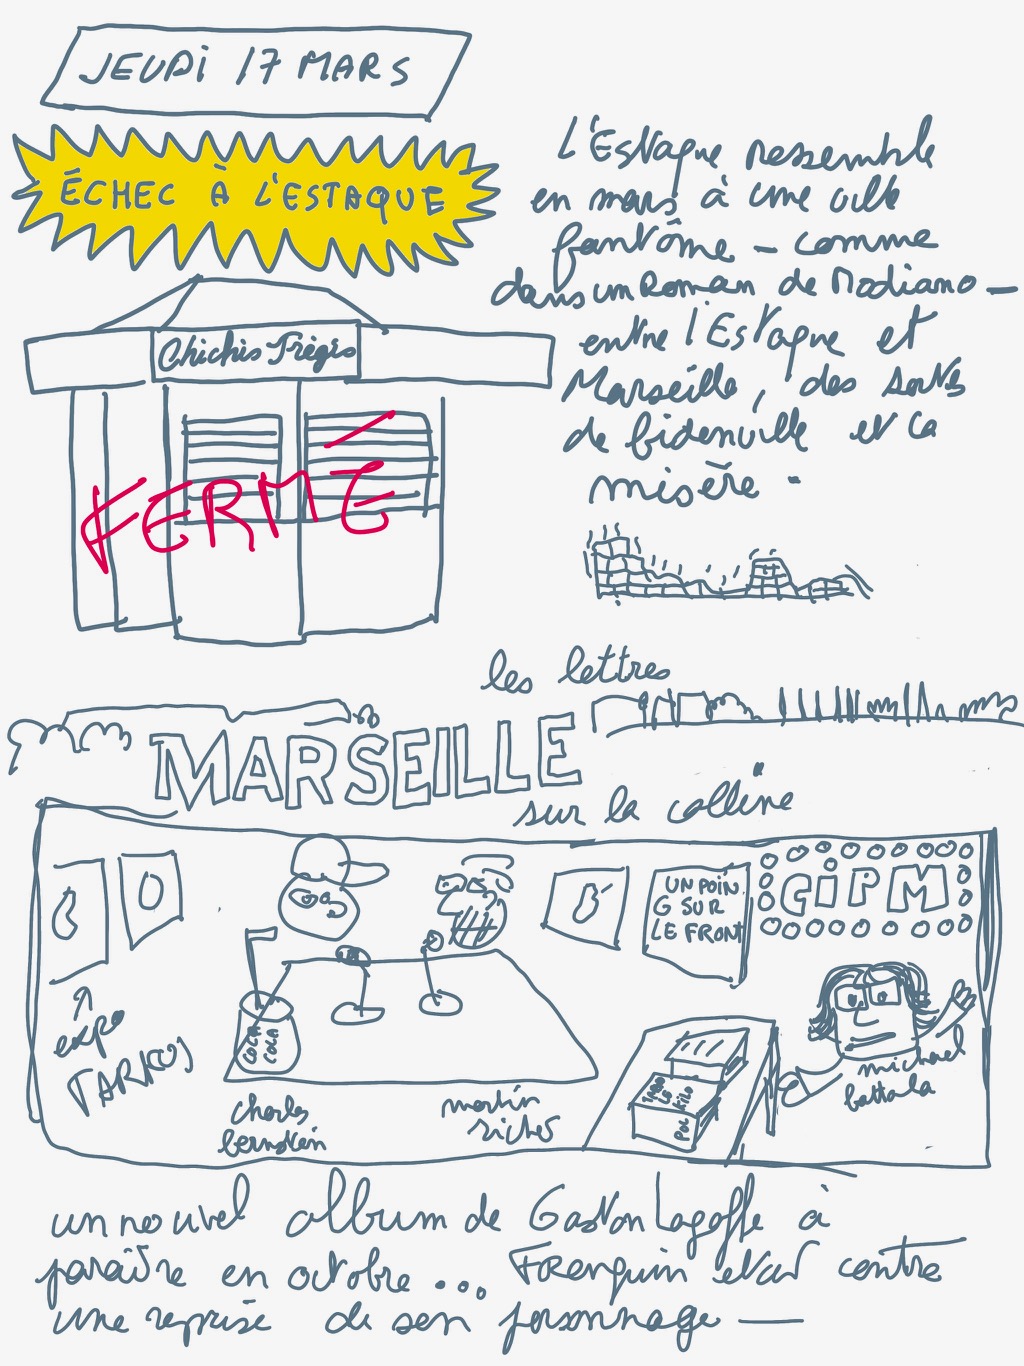 JEUDI 17 MARS
ÉCHEC À L'ESTAQUE
L'Estaque ressemble
en mars à une ville
fantôme – comme
dans un Roman de Modiano –
entre l'Estaque et
Marseille, des sortes
de bidonville et la
misère.
Chichis Frégis
FERMÉ
les lettres
MARSEILLE
sur la colline
UN POIN
G SUR
LE FRONT
CiPM
expo
TARKOS
COCA
COLA
charles
bernstein
martin
richet
LE KILO
POL
michael
battala
un nouvel album de Gaston Lagaffe à
paraître en octobre... Franquin était contre
une reprise de son personnage —